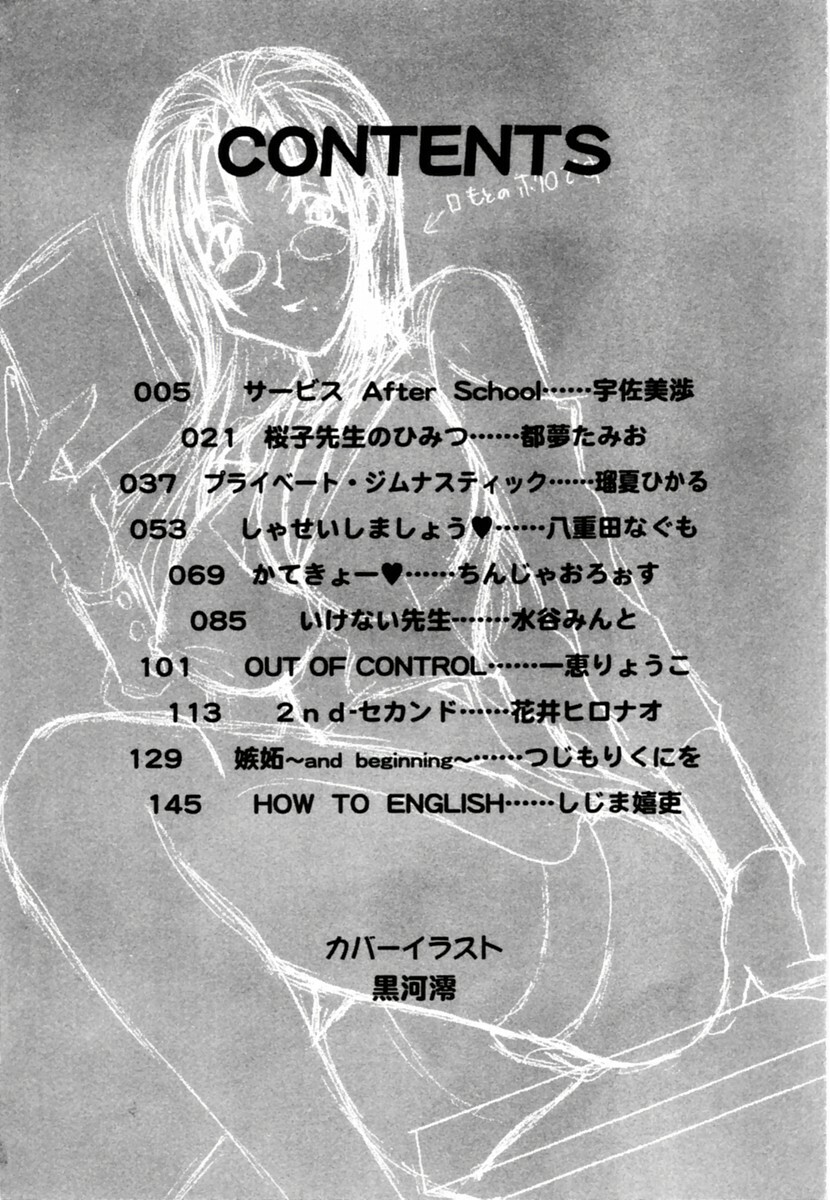 CONTENTS
口もとのホクロです
005 サービス After School……宇佐美渉
021 桜子先生のひみつ……都夢たみお
037 プライベート・ジムナスティック……瑠夏ひかる
053 しゃせいしましょう♥……八重田なぐも
069 かてきょー♥……ちんじゃおろぉす
085 いけない先生……水谷みんと
101 OUT OF CONTROL……一恵りょうこ
113 2nd-セカンド……花井ヒロナオ
129 嫉妬~and beginning~……つじもりくにを
145 HOW TO ENGLISH……しじま嬉吏
カバーイラスト
黒河澪